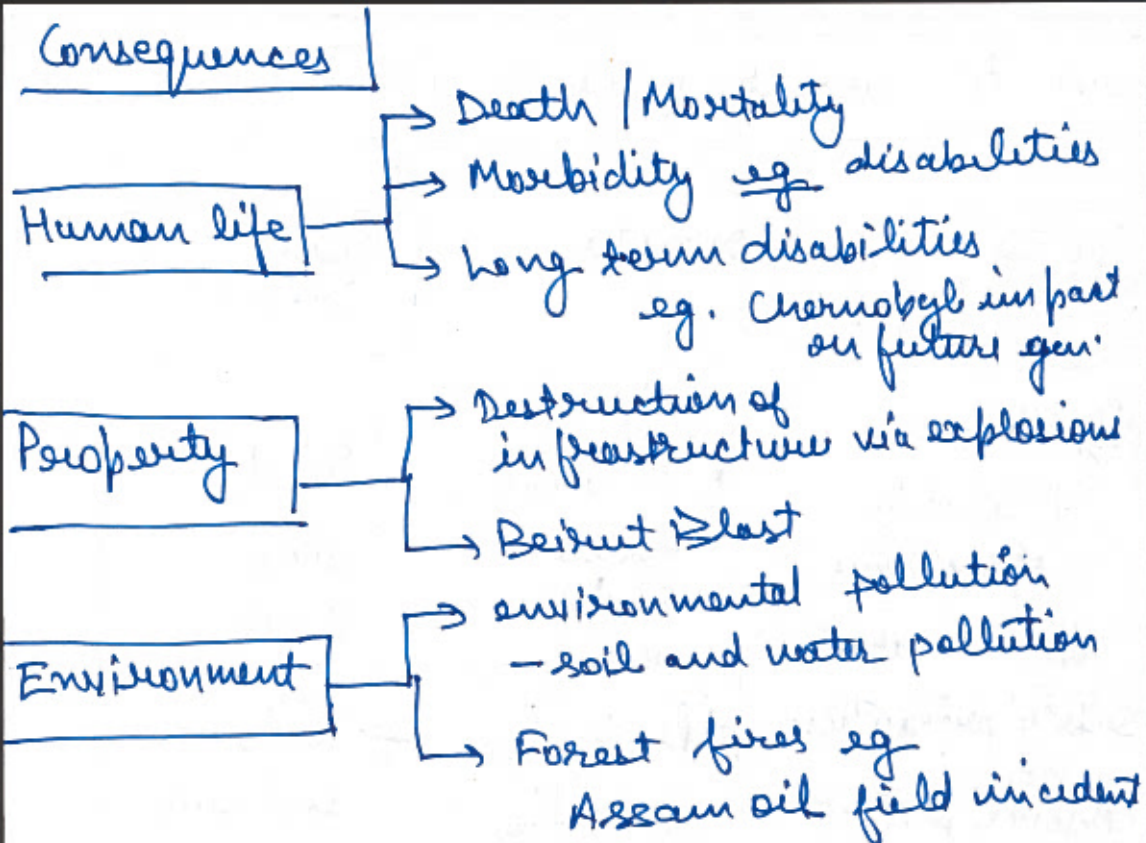 Consequences
Human life
Death / Mortality
Morbidity eg disabilities
Long term disabilities
eg. Chernobyl impact
on future gen.
Property
Destruction of
infrastructure via explosions
Beirut Blast
Environment
environmental pollution
- soil and water pollution
Forest fires eg
Assam oil field incident